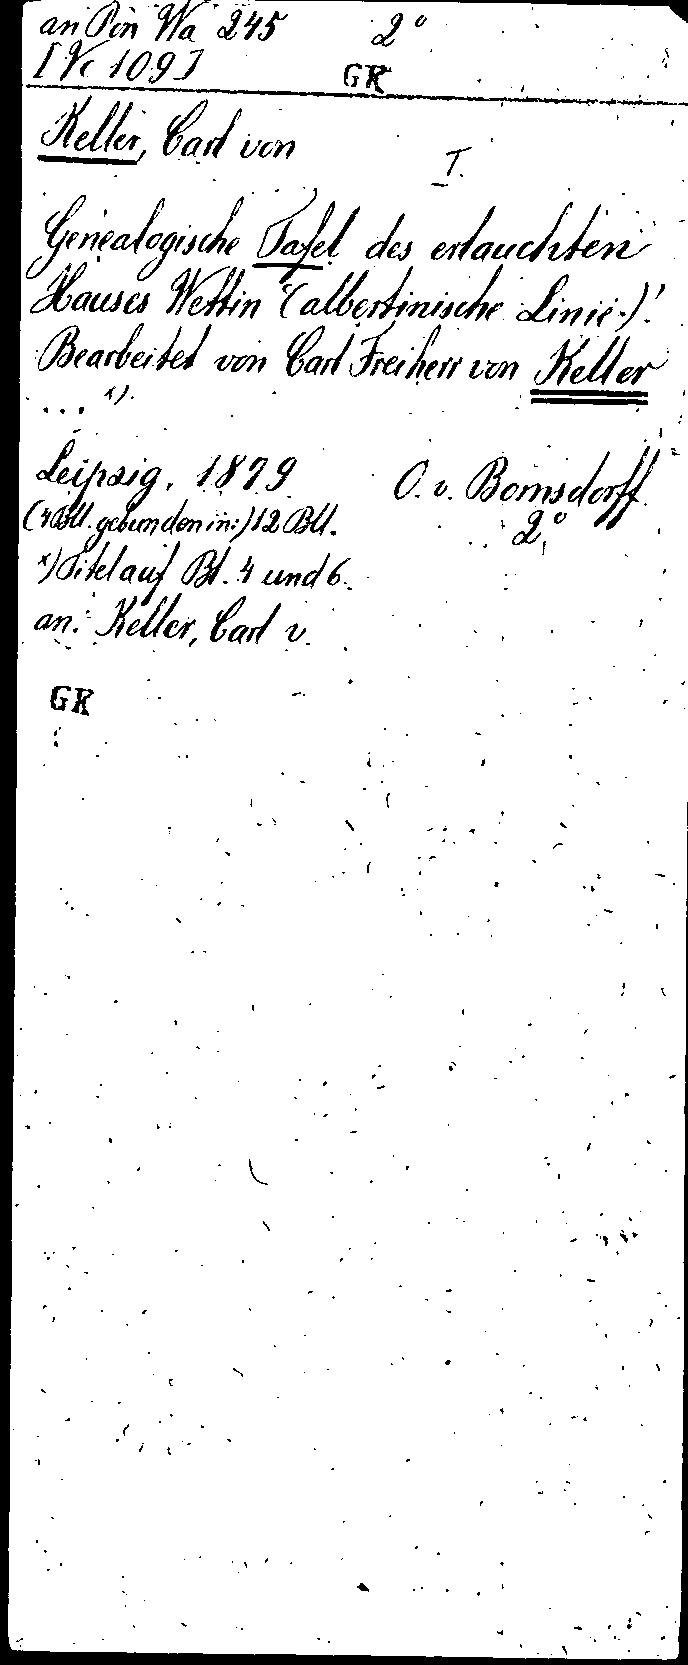 an Pon Wa 245 2°
[Vc 109] GK
Keller, Carl von
I.
Genealogische Tafel des erlauchten
Hauses Wettin (albertinische Linie.)!
Bearbeitet von Carl Freiherr von Keller
... x).
Leipzig, 1879 O. v. Bomsdorff.
(4 Bll. gebunden in:) 12 Bll. 2°
x) Titel auf Bl. 4 und 6.
an: Keller, Carl v.
GK